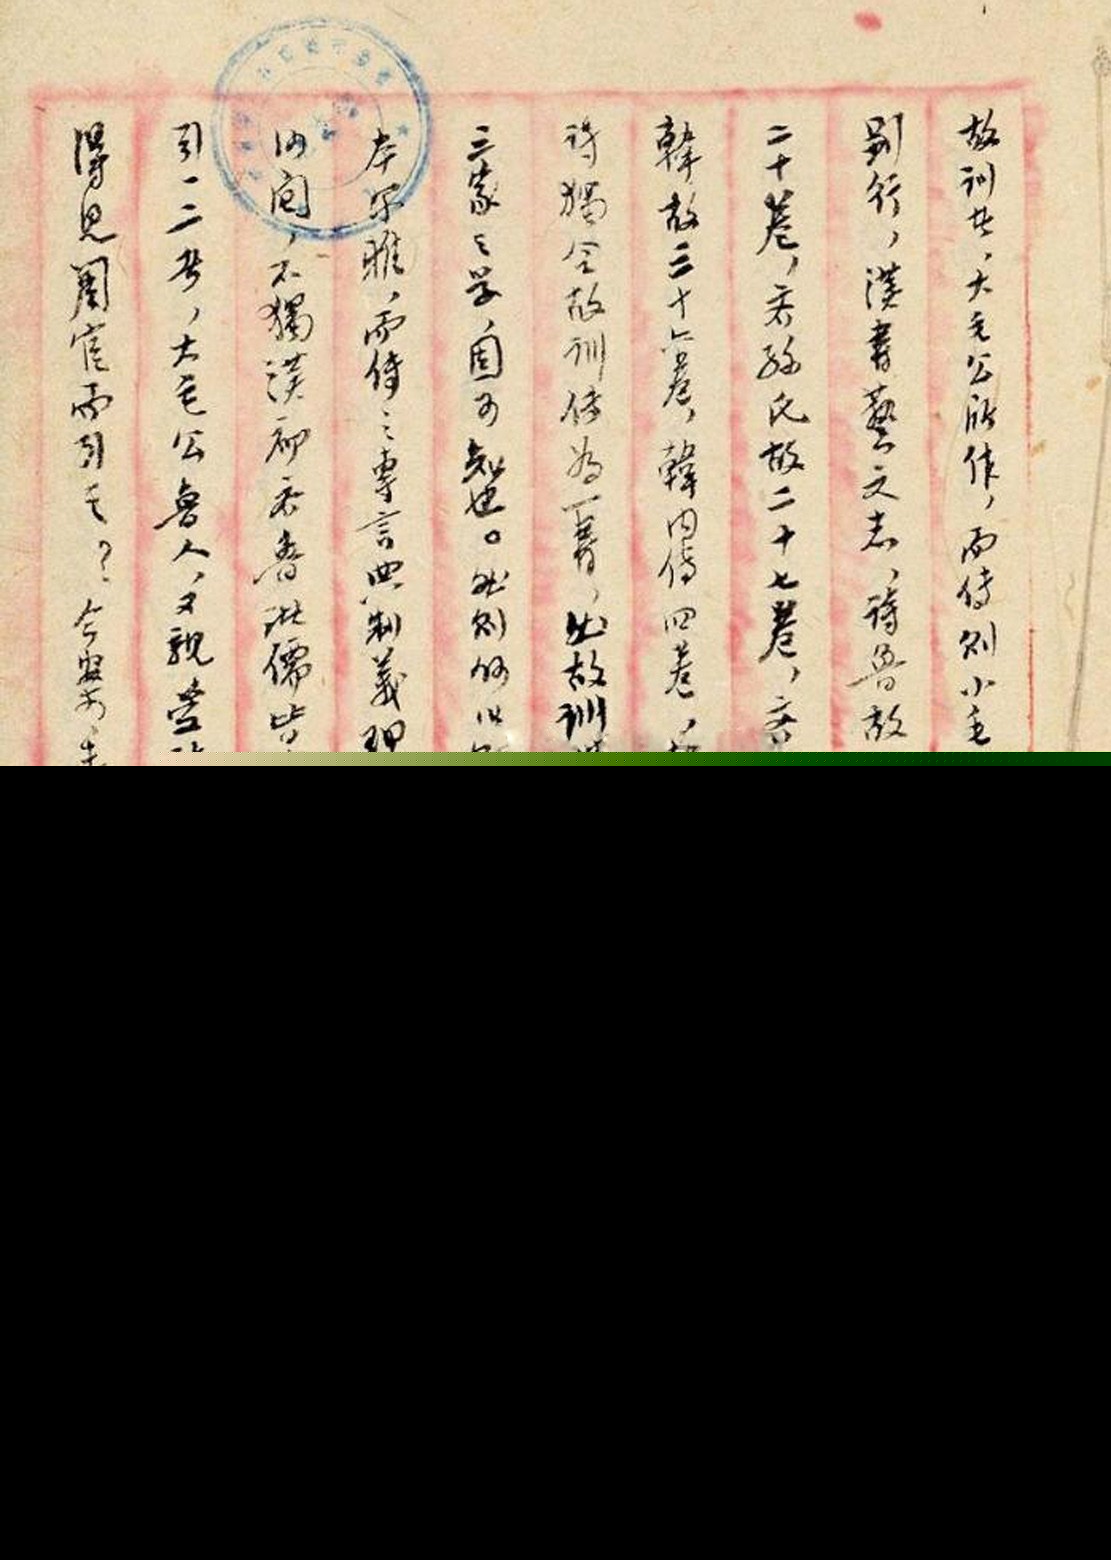 故訓者，大毛公所作，而傳則小毛
別行，漢書藝文志，詩魯故
二十卷，齊孫氏故二十七卷，齊
韓故三十六卷，韓內傳四卷，
詩獨合故訓傳為一書，此故訓
三家之學，固可知也。然則何以
本尔雅，而傳之專言典制義理
河间，不獨漢初齊魯諸儒皆
引一二者，大毛公魯人，又親受
得見周官而引之？今案